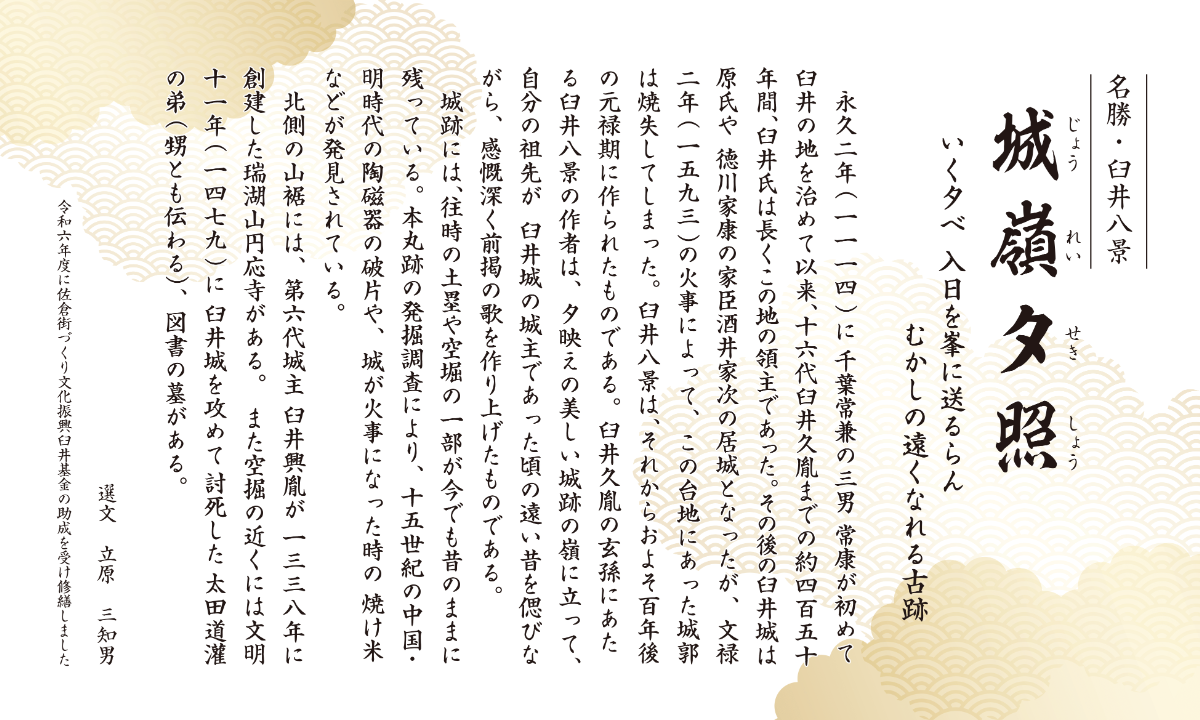 名勝・臼井八景
城嶺夕照
じょう れい せき しょう
いく夕べ 入日を峯に送るらん
むかしの遠くなれる古跡
永久二年（一一一四）に 千葉常兼の三男 常康が初めて
臼井の地を治めて以来、十六代臼井久胤までの約四百五十
年間、臼井氏は長くこの地の領主であった。その後の臼井城は
原氏や 徳川家康の家臣酒井家次の居城となったが、文禄
二年（一五九三）の火事によって、この台地にあった城郭
は焼失してしまった。臼井八景は、それからおよそ百年後
の元禄期に作られたものである。臼井久胤の玄孫にあた
る臼井八景の作者は、夕映えの美しい城跡の嶺に立って、
自分の祖先が 臼井城の城主であった頃の遠い昔を偲びな
がら、感慨深く前掲の歌を作り上げたものである。
城跡には、往時の土塁や空堀の一部が今でも昔のままに
残っている。本丸跡の発掘調査により、十五世紀の中国・
明時代の陶磁器の破片や、城が火事になった時の 焼け米
などが発見されている。
北側の山裾には、第六代城主 臼井興胤が 一三三八年に
創建した瑞湖山円応寺がある。 また空掘の近くには文明
十一年（一四七九）に 臼井城を攻めて 討死した 太田道灌
の弟（甥とも伝わる）、図書の墓がある。
選文 立原 三知男
令和六年度に佐倉街づくり文化振興臼井基金の助成を受け修繕しました